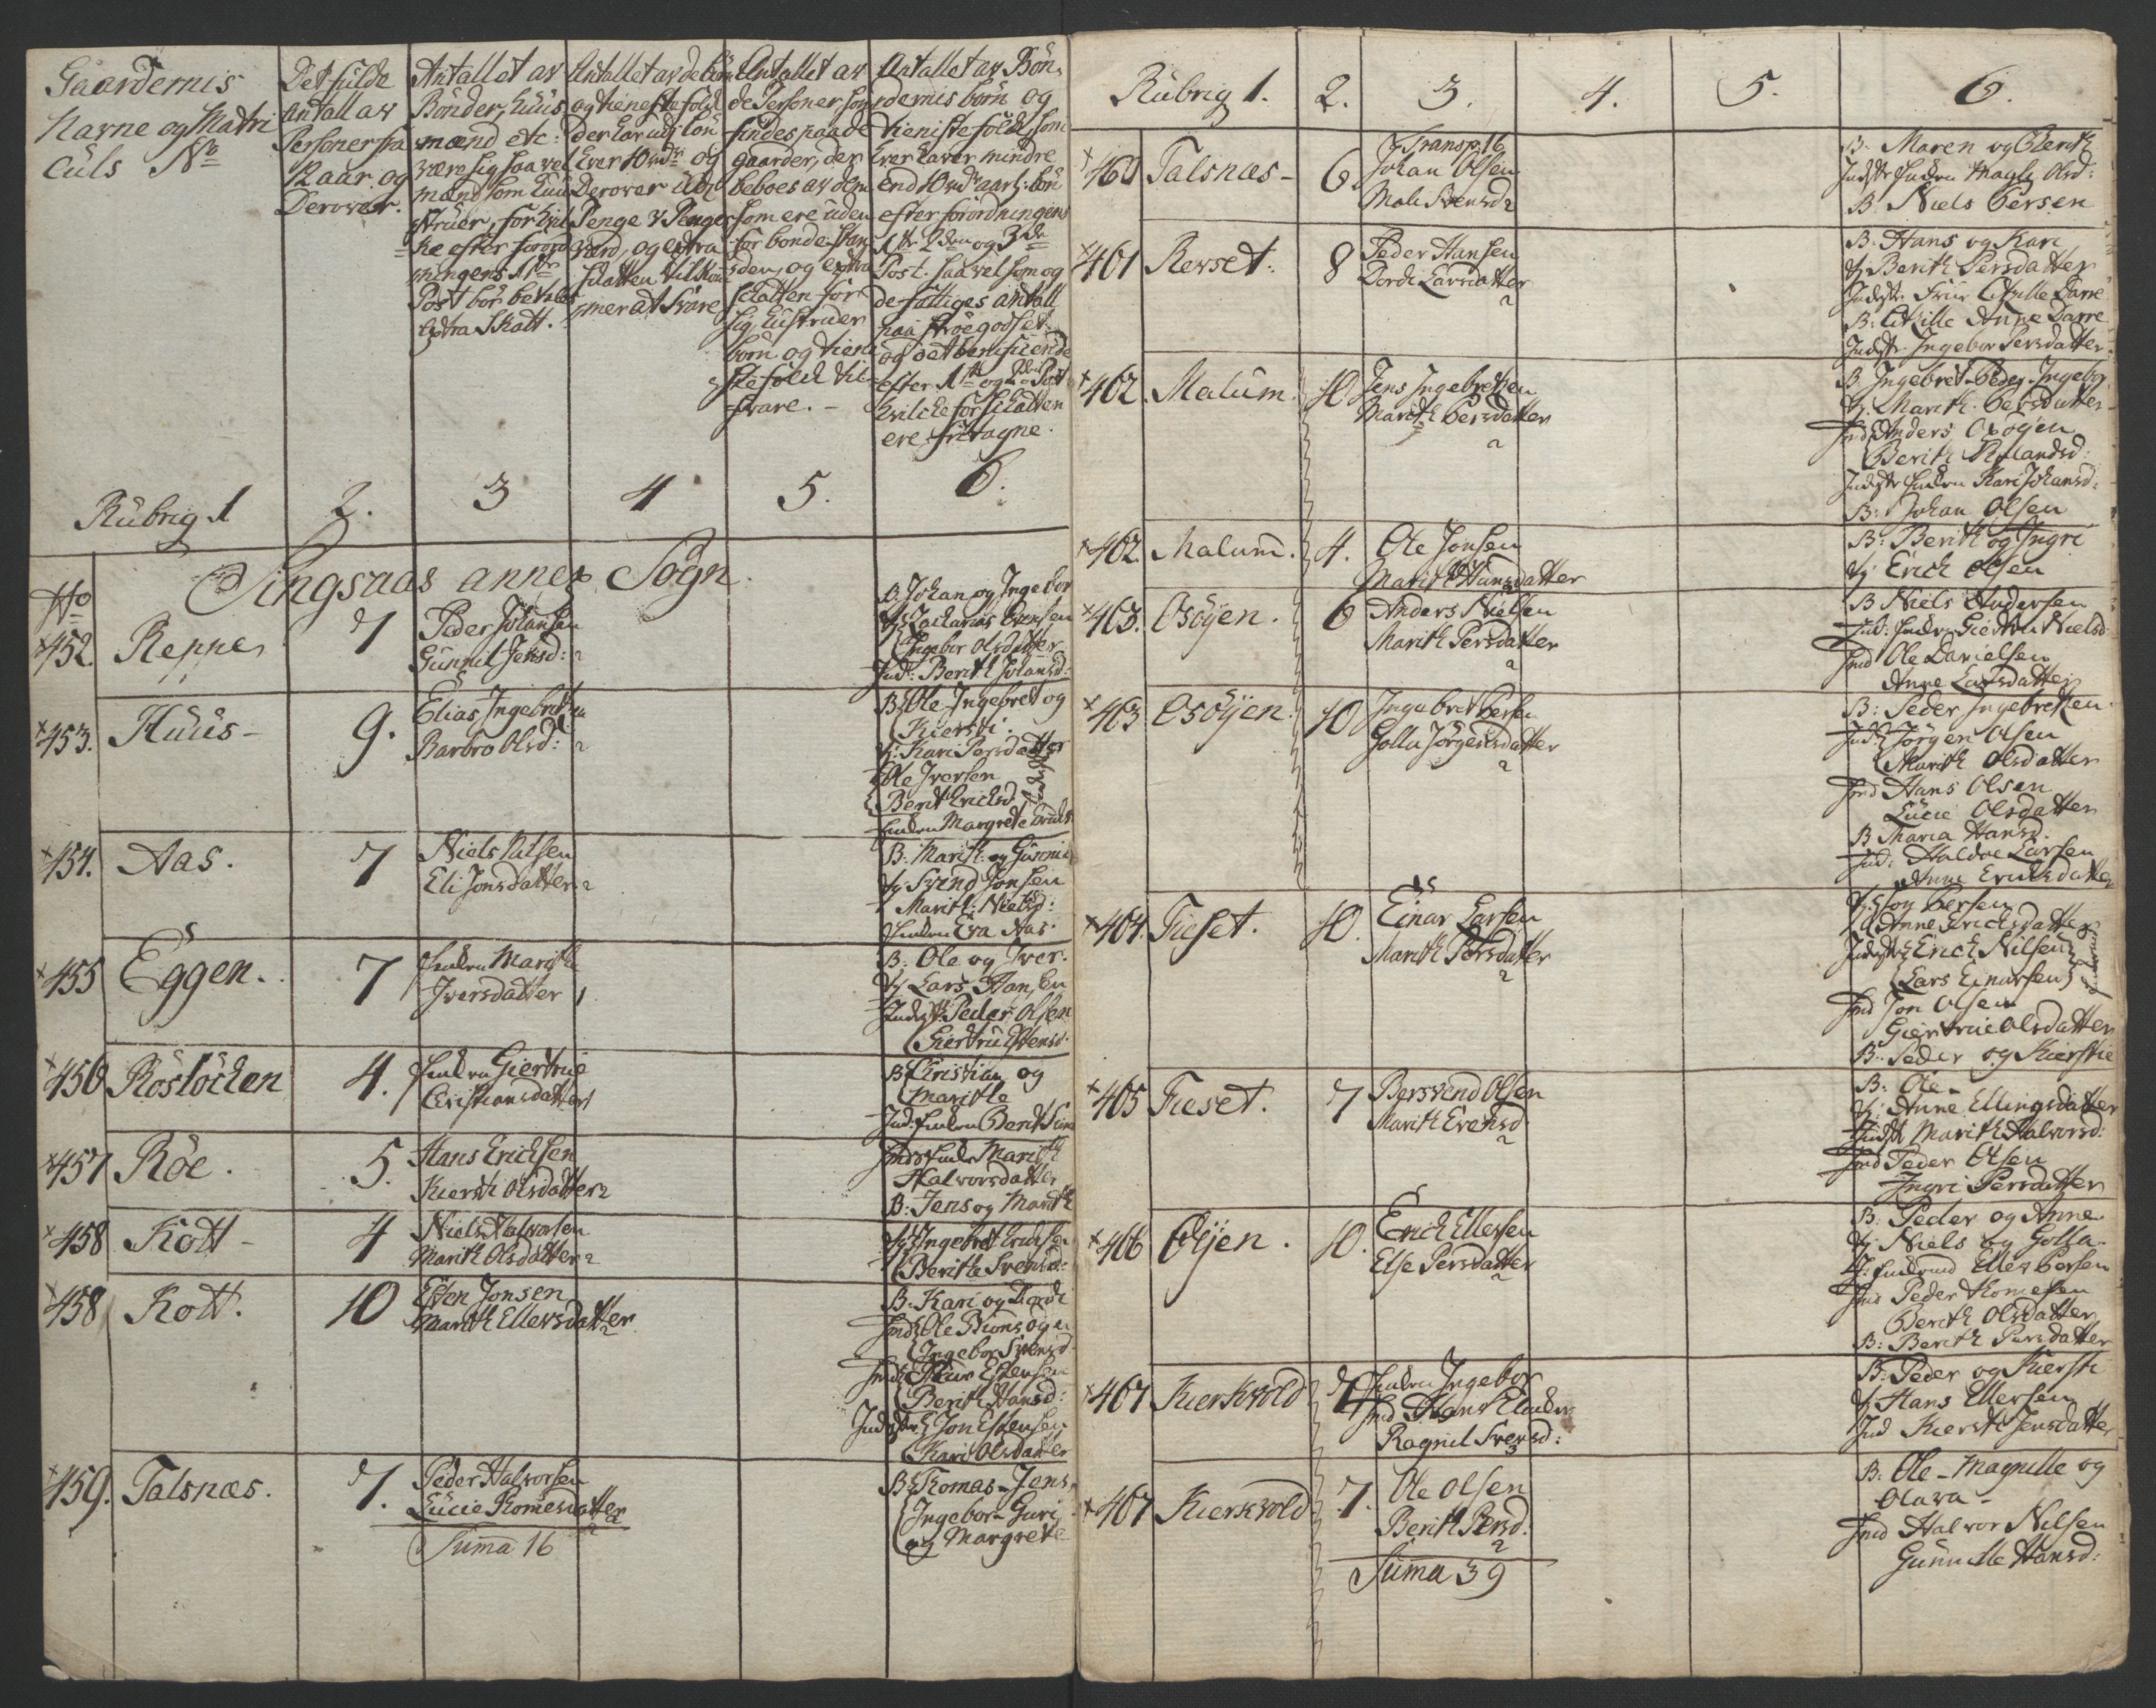 Gaardernis
Navne og Matri
culs No
Det fulde
Antall av
Personer fra
12 aar og
Derover.
Antallet av
Bönder, Huus
mænd etc:
være sig saavel
mænd som Huu
struer, for hvil
ke efter forord
ningens 1ste
Post bör betales
Extra Skatt.
Antallet av de börn
og tienestefolk
der har udj lön
hver 10 rdr og
Derover udj
Penge & Penges
værd, og extra
skatten tilkom
mer at svare
Antallet av
de Personer, som
findes paa de
gaarder, der
beboes av dem
som ere uden
for bondestan
den, og extra
skatten for
sig, hustruer
börn og tiene
stefolk til
svare. -
Antallet av Bön,
dernis börn og
tienistefolk, som
hver haver mindre
end 10 rdr aarl: lön
efter forordningens
1ste 2den og 3de
Post. saavel som og
de fattiges antall
paa ströegodset.
og det beneficerede
efter 1ste og 2den Post
hvilcke for skatten
ere fritagne.
Rubrig 1 2. 3 4 5. 6.
Singsaas annex Sogn.
No
452. Reppe 7 Peder Johansen
Gunnil Jensd: 2
B. Johan og Ingebor
Tj Zacharias Evensen
Ingebor Olsdatter
Ind: Berith Johansd:
453. Huus - 9. Elias Ingebretsen
Barbro Olsd: 2
B: Ole Ingebret og
Kiersti.
Tj: Kari Persdatter
Ole Iversen
Berit Ericksd
Enken Margrete
454. Aas. 7 Niels Nilsen
Eli Jonsdatter. 2
B: Marith og Gunnil
Tj Svend Jonsen
Marith: Nielsd:
Enken Eva Aas.
455 Eggen. 7 Enken Marith
Iversdatter 1
B: Ole og Iver.
Tj Lars Hansen
Indst: Peder Olsen
Giertru Estensd.
456 Röslöcken 4. Enken Giertrue
Christiansdatter 1
B Christian og
Marithe
Ind: Enken Berit
457 Röe. 5. Hans Ericksen
Kiersti Olsdatter 2
Inds Enke Marith
Halvorsdatter
B: Jens og Marith
458 Kött - 4 Niels Halvorsen
Marith Olsdatter 2
Tj Ingebret Ericksen
Berithe Svensd:
458 Kott. 10 Esten Jonsen
Marith Ellevsdatter 2
B. Kari og Dordi
Ind Ole
Ingebor Svensd
Ind Siur Estensen
Berith Hansd:
Indst: Jon Estensen
Kari Olsdatter
459. Talsnæs. 7. Peder Halvorsen
Lucie Romesdatter 2
B Thomas - Jens
Ingebor - Guri
og Margrete
Suma 16
Rubrig 1. 2. 3. 4. 5. 6.
Transp: 16
460 Talsnæs - 6. Johan Olsen
Mali Svensd 2
B. Maren og Berith
Indst Enken Magli Olsd:
B. Niels Persen
461 Revset. 8 Peder Hansen
Dordi Larsdatter 2
B. Hans og Kari
Tj Berith Persdatter
Indst: Siur Darre
B: Anne Darre
Indst: Ingebor Persdatter
462. Malum. 10 Jens Ingebretsen
Marith Persdatter 2
B Ingebret - Peder - Ingebor
Tj. Marith: Persdatter
Ind Anders Osöyen
Berith
Indst Enken Kari Johansd:
B: Johan Olsen
462. Malum. 4. Ole Jonsen
Marith Hansdatter 2
B: Berith og Ingri
Tj Erich Olsen
463. Osöyen. 6 Anders Nielsen
Marith Persdatter 2
B Niels Andersen
Ind: Enken Giertru Nielsd
Ind Ole Danielsen
Anne Larsdatter
463 Osöyen. 10 Ingebret Persen
Golla Jörgensdatter 2
B: Peder Ingebretsen
Ind: Jörgen Olsen
Marith Olsdatter
Ind Hans Olsen
Lucie Olsdatter
B Maria Hansd.
Ind: Haldoe Larsen
Anne Ericksdatter
464. Fieset. 10. Einar Larsen
Marith Persdatter 2
Tj: Jon Persen
Anne Ericksdatter
Indst Erich Nilsen
Lars Einarsen
Ind Jon Olsen
Giertrue Olsdatter
B: Peder og Kierstie
465 Fieset. 7 Bersvend Olsen
Marith Evensd 2
B: Ole -
Tj: Anne Ellingsdatter
Indst Marith Halvorsd:
Ind Peder Olsen
Ingri Persdatter
466 Öyen. 10. Erich Ellevsen
Else Persdatter 2
B. Peder og Anne
Tj Niels og Golla
Enkemd Ellev Persen
Ind Peder Romesen
Berith Olsdatter
B: Berith Persdatter
467 Kierksvold 7 Enken Ingebor
Ind Hans
Ragnil Svensd: 3
B: Peder og Kiersti
Tj Hans Ellevsen
Ind Kiersti Jensdatter
467 Kierksvold 7. Ole Olsen
Berith Persd: 2
B. Ole - Magnille og
Olava -
Ind Halvor Nilsen
Gunnille Hansd:
Suma 39